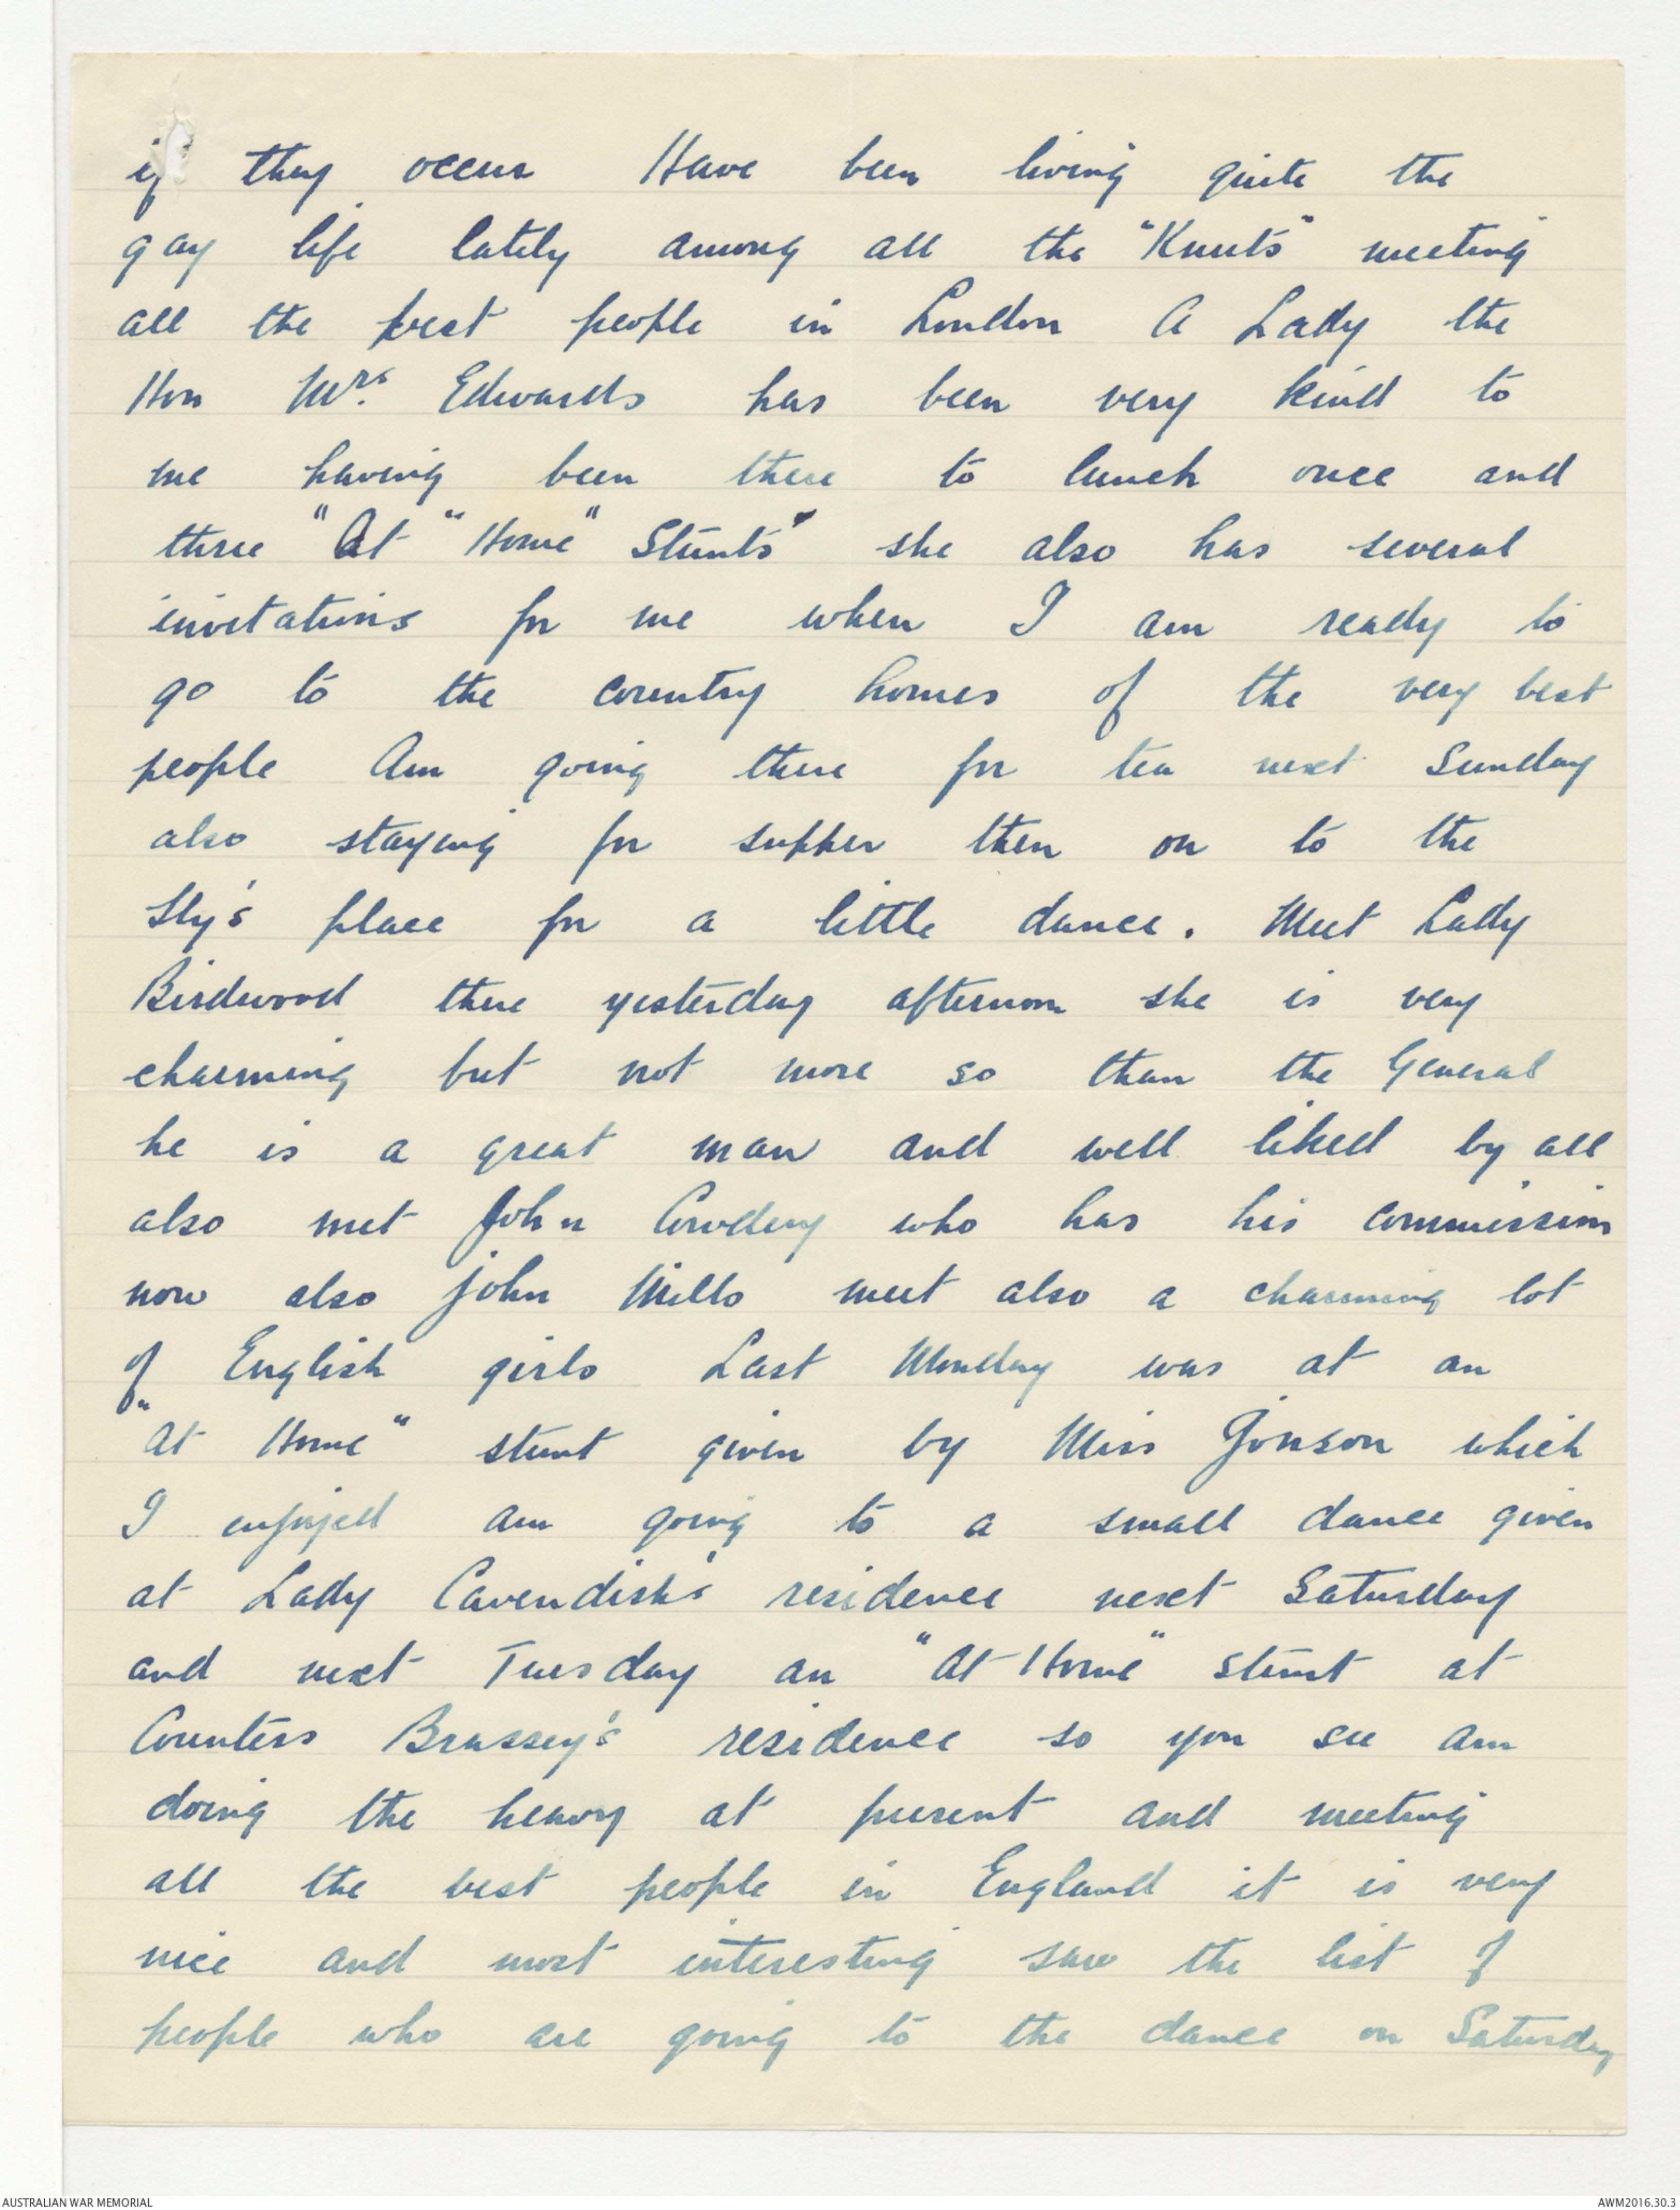 if they occur Have been living quite the
gay life lately among all the "Knuts" meeting
all the best people in London A Lady the
Hon Mrs. Edwards has been very kind to
me having been there to lunch once and
three "At "Home" Stunts" she also has several
invitations for me when I am ready to
go to the country homes of the very best
people Am going there for tea next Sunday
also staying for supper then on to the
Sly's place for a little dance. Meet Lady
Birdwood there yesterday afternoon she is very
charming but not more so than the General
he is a great man and well liked by all
also met John Cowdery who has his commission
now also John Mills meet also a charming lot
of English girls Last Monday was at an
"At Home" stunt given by Miss Jonson which
I enjoyed am going to a small dance given
at Lady Cavendish's residence next Saturday
and next Tuesday an "At Home" stunt at
Counters Brassey's residence so you see am
doing the heavy at present and meeting
all the best people in England it is very
nice and most interesting saw the list of
people who are going to the dance on Saturday
AUSTRALIAN WAR MEMORIAL
AWM2016.30.3